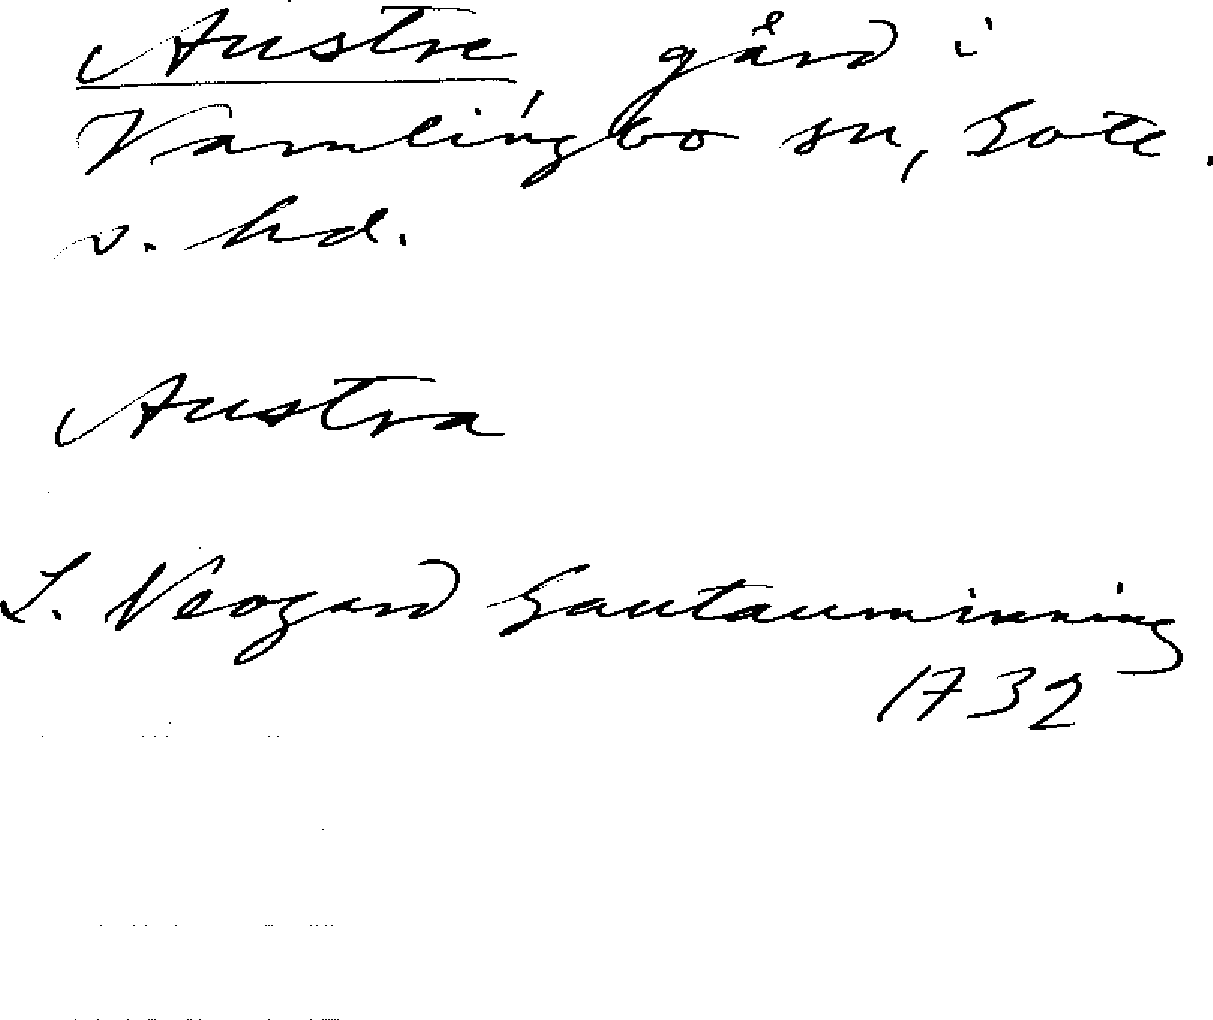 Austre, gård i
Vamlingbo sn, Gotl.
s. hd.
Austra
L. Neogard Gautauminning
1732